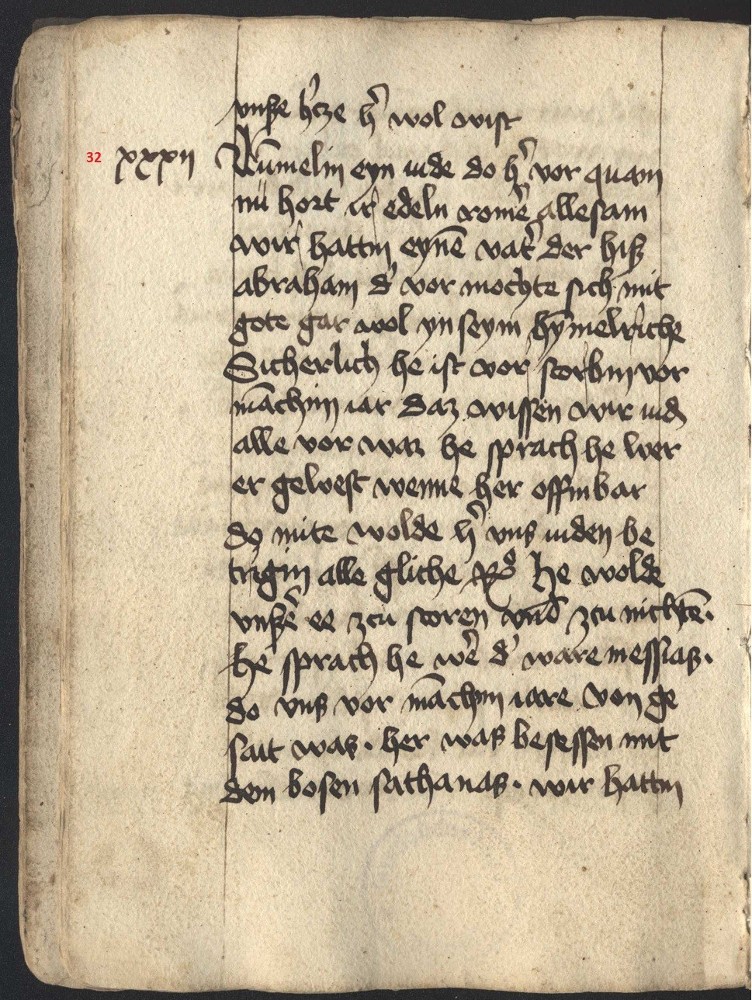 vnße h'cze h' wol wist
32 xxxii Rūmelin eyn iude do h' vor quam
nū hort ir edeln rome' alle sam
wir hattin eynē vat' der hiß
abraham d' vor mochte sich mit
gote gar wol yn seym hymelriche
Sicherlich he ist vor storbin vor
māchim iar daz wissen wir iudē
alle vor war he sprach he wer
er gewest wenne her offinbar
do mite wolde h' vns iuden be
trigin alle gliche He wolde
vnße' ee zcu storen vnd zcu nichtē·
he sprach he we' d' ware messias·
do vns vor māchim iare von ge
sait was· her was besessen mit
dem bosen sathanas· wir hattin